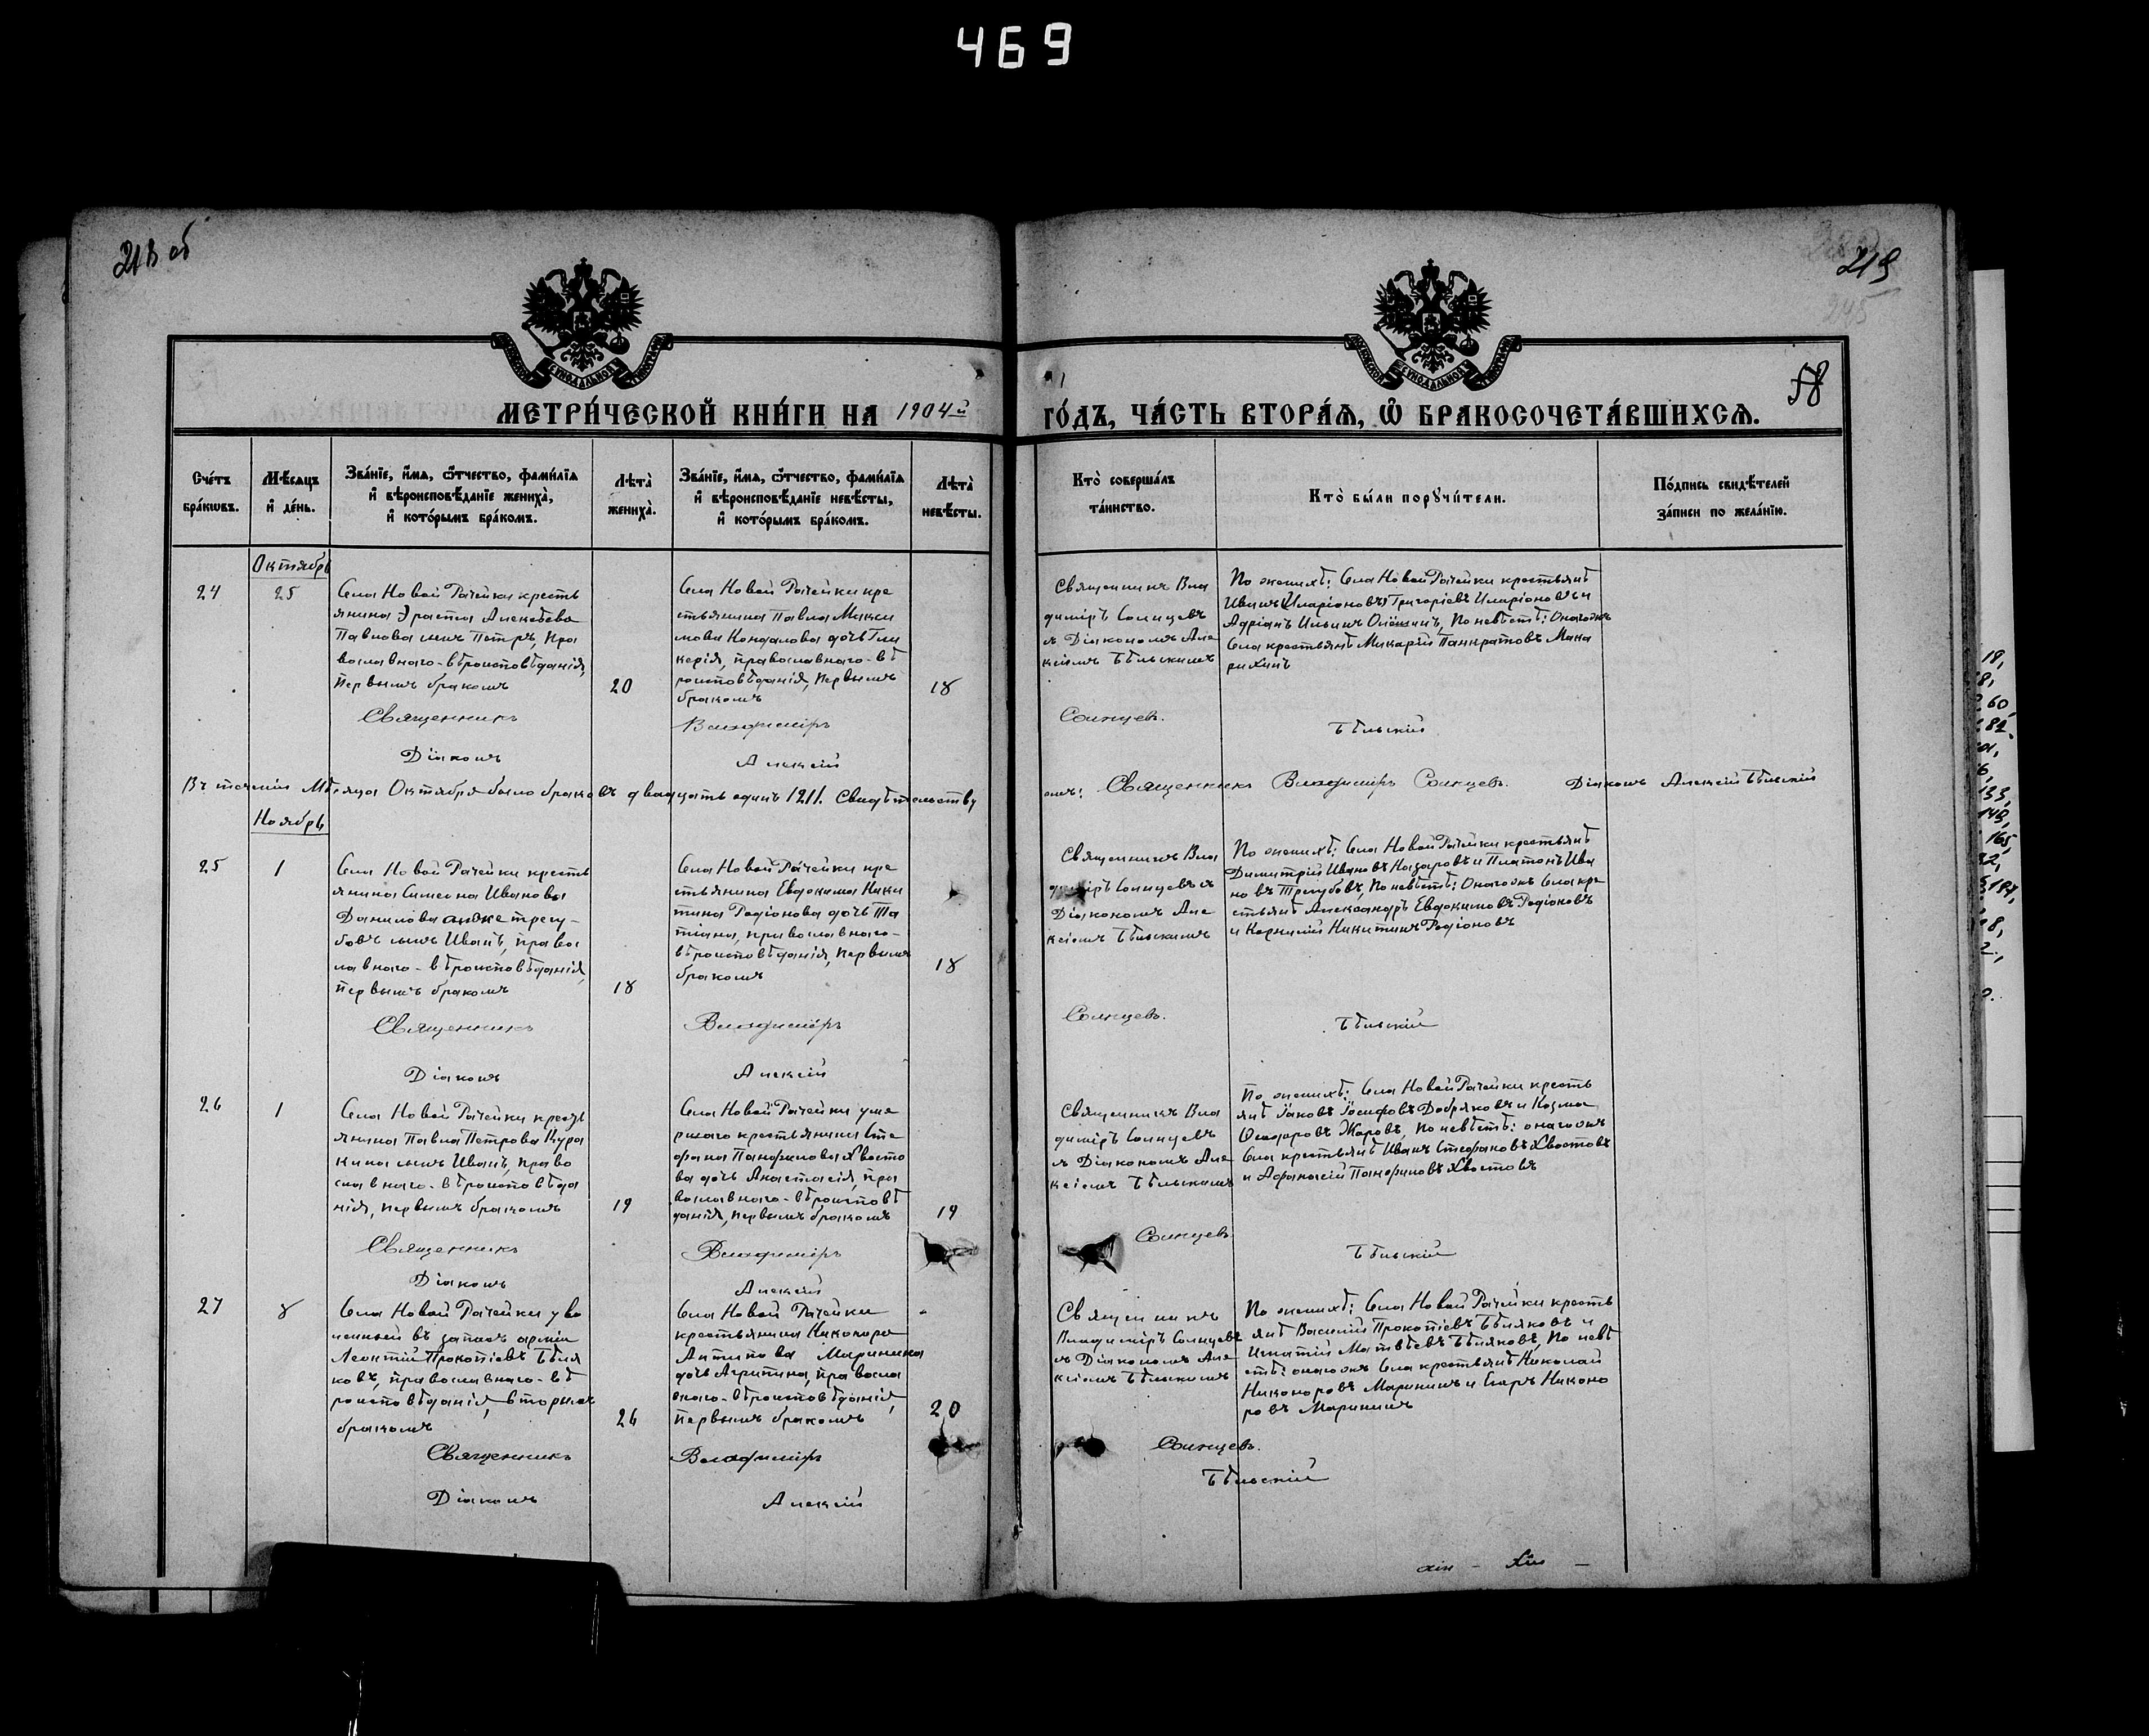 469
218 об
219
245
58
МЕТРИ́ЧЕСКОЙ КНИ́ГИ НА 1904й ГО́ДЪ, ЧА́СТЬ ВТОРА́Ѧ, Ѿ БРАКОСОЧЕТА́ВШИХСѦ.
Сче́тъ бра́кѡвъ.
Мѣ́сѧцъ и҆ де́нь.
Зва́нїе, и҆́мѧ, ѻ҆́тчество, фами́лїѧ
и҆ вѣроисповѣ́данїе жениха̀,
и҆ кото́рымъ бра́комъ.
Лѣта̀ жениха̀.
Зва́нїе, и҆́мѧ, ѻ҆́тчество, фами́лїѧ
и҆ вѣроисповѣ́данїе невѣ́сты,
и҆ кото́рымъ бра́комъ.
Лѣта̀ невѣ́сты.
Кто̀ соверша́лъ та́инство.
Кто̀ бы́ли порꙋчи́тели.
По́дпись свидѣ́телей
за́писи по жела́нїю.
Октябрь
24
25
Села Новой Рачейки кресть
янина Эраста Алексѣева
Павлова сынъ Петръ, пра
вославнаго-вѣроисповѣданія,
первымъ бракомъ
20
Села Новой Рачейки кре
стьянина Павла Макси
мова Кондалова дочь Гли
керія, православнаго-вѣ
роисповѣданія, первымъ
бракомъ
18
Священникъ Вла
димiръ Солнцевъ
съ Діакономъ Але
ксіемъ Бѣльскимъ
По женихѣ: Села Новой Рачейки крестьянѣ
Иванъ Иларіоновъ, Григорiевъ Иларіоновъ и
Адріанъ Ильинъ, По невѣстѣ: Онагожъ
Села крестьянѣ Макарій Панкратовъ Мака
рихинъ
Священникъ Владимiръ Солнцевъ.
Діаконъ Алексій Бѣльскій
Въ теченіи Мѣсяца Октября было браковъ двадцать одинъ /21/. Свидѣтельству
емъ: Священникъ Владимiръ Солнцевъ. Діаконъ Алексій Бѣльскій
Ноябрь
25
1
Села Новой Рачейки кресть
янина Симеона Иванова
Данилова онже трегу-
бовъ сынъ Иванъ, правос
лавнаго-вѣроисповѣданія,
первымъ бракомъ
18
Села Новой Рачейки кре
стьянина Евдокима Ники
тина Родіонова дочь Та
тіана, православнаго-
вѣроисповѣданія, первымъ
бракомъ
18
Священникъ Вла
димiръ Солнцевъ съ
Діакономъ Але
ксіемъ Бѣльскимъ
По женихѣ: Села Новой Рачейки крестьянѣ
Димитрій Ивановъ Назаровъ и Платонъ Ива
новъ Трегубовъ, По невѣстѣ: Онагожъ Села кре
стьянѣ Александръ Евдокимовъ Родіоновъ
и Корнилій Никитинъ Родіоновъ
Священникъ Владимiръ Солнцевъ.
Діаконъ Алексій Бѣльскій
26
1
Села Новой Рачейки кресть
янина Павла Петрова Кура
кина сынъ Иванъ, право
славнаго-вѣроисповѣда
нія, первымъ бракомъ
19
Села Новой Рачейки уме
ршаго крестьянина Сте
фана Панфилова Хвосто
ва дочь Анастасія, пра
вославнаго-вѣроисповѣ
данія, первымъ бракомъ
19
Священникъ Вла
димiръ Солнцевъ
съ Діакономъ Але
ксіемъ Бѣльскимъ
По женихѣ: Села Новой Рачейки кресть
янѣ Іаковъ Іосифовъ Добряковъ и Козма
Ѳеодоровъ Жаровъ, По невѣстѣ: онагожъ
Села крестьянѣ Иванъ Стефановъ Хвостовъ
и Афанасій Панфиловъ Хвостовъ
Священникъ Владимiръ Солнцевъ
Діаконъ Алексій Бѣльскій
27
8
Села Новой Рачейки уво
ленный въ запасъ арміи
Леонтій Прокопіевъ Бѣля
ковъ, православнаго-вѣ
роисповѣданія, вторымъ
бракомъ
26
Села Новой Рачейки
крестьянина Никонора
Антипова Маринина
дочь Агрипина, правосла
внаго-вѣроисповѣданія,
первымъ бракомъ
20
Священникъ
Владимiръ Солнцевъ
съ Діакономъ Але
ксіемъ Бѣльскимъ
По женихѣ: Села Новой Рачейки кресть
янѣ Василій Прокопіевъ Бѣляковъ и
Игнатій Матвѣевъ Бѣляковъ, По невѣ
стѣ: онагожъ Села крестьянѣ Николай
Никоноровъ Марининъ и Егоръ Никоно
ровъ Марининъ
Священникъ Владимiръ Солнцевъ.
Діаконъ Алексій Бѣльскій